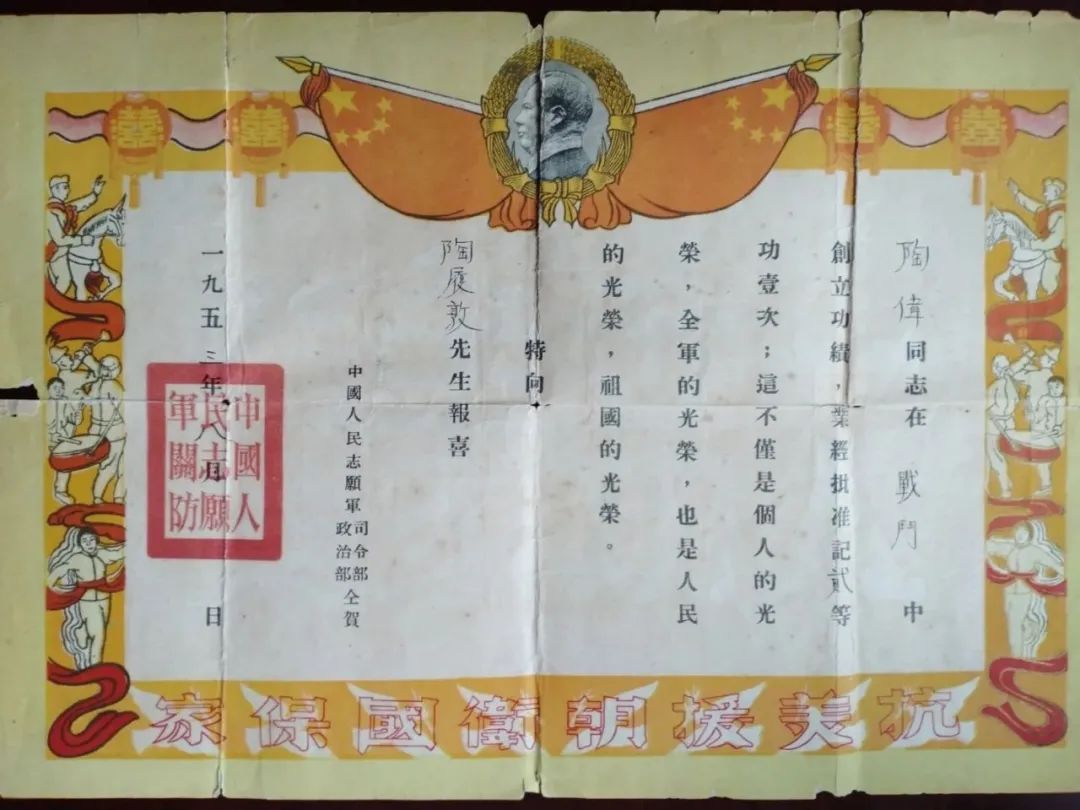 陶偉同志在 戰鬥 中
創立功績，業經批准記貳等
功壹次；這不僅是個人的光
榮，全軍的光榮，也是人民
的光榮，祖國的光榮。
特向
陶履敦先生報喜
中國人民志願軍司令部
政治部仝賀
一九五三年八月 日
中國人民志願軍關防
抗美援朝衛國保家